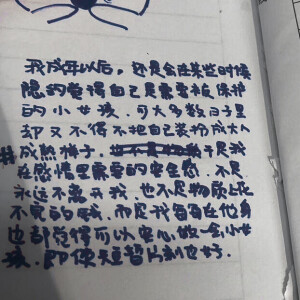 我成年以后，还是会在某些时候
隐约觉得自己是需要被保护
的小女孩，可大多数日子里
却又不得不把自己装扮成大人
成熟样子，于是我
在感情里最要的安全感，不是
永远不离开我，也不是物质上花
不完的钱，而是我每每在他身
边都觉得可以安心做一会小女
孩，即便短暂片刻也好．